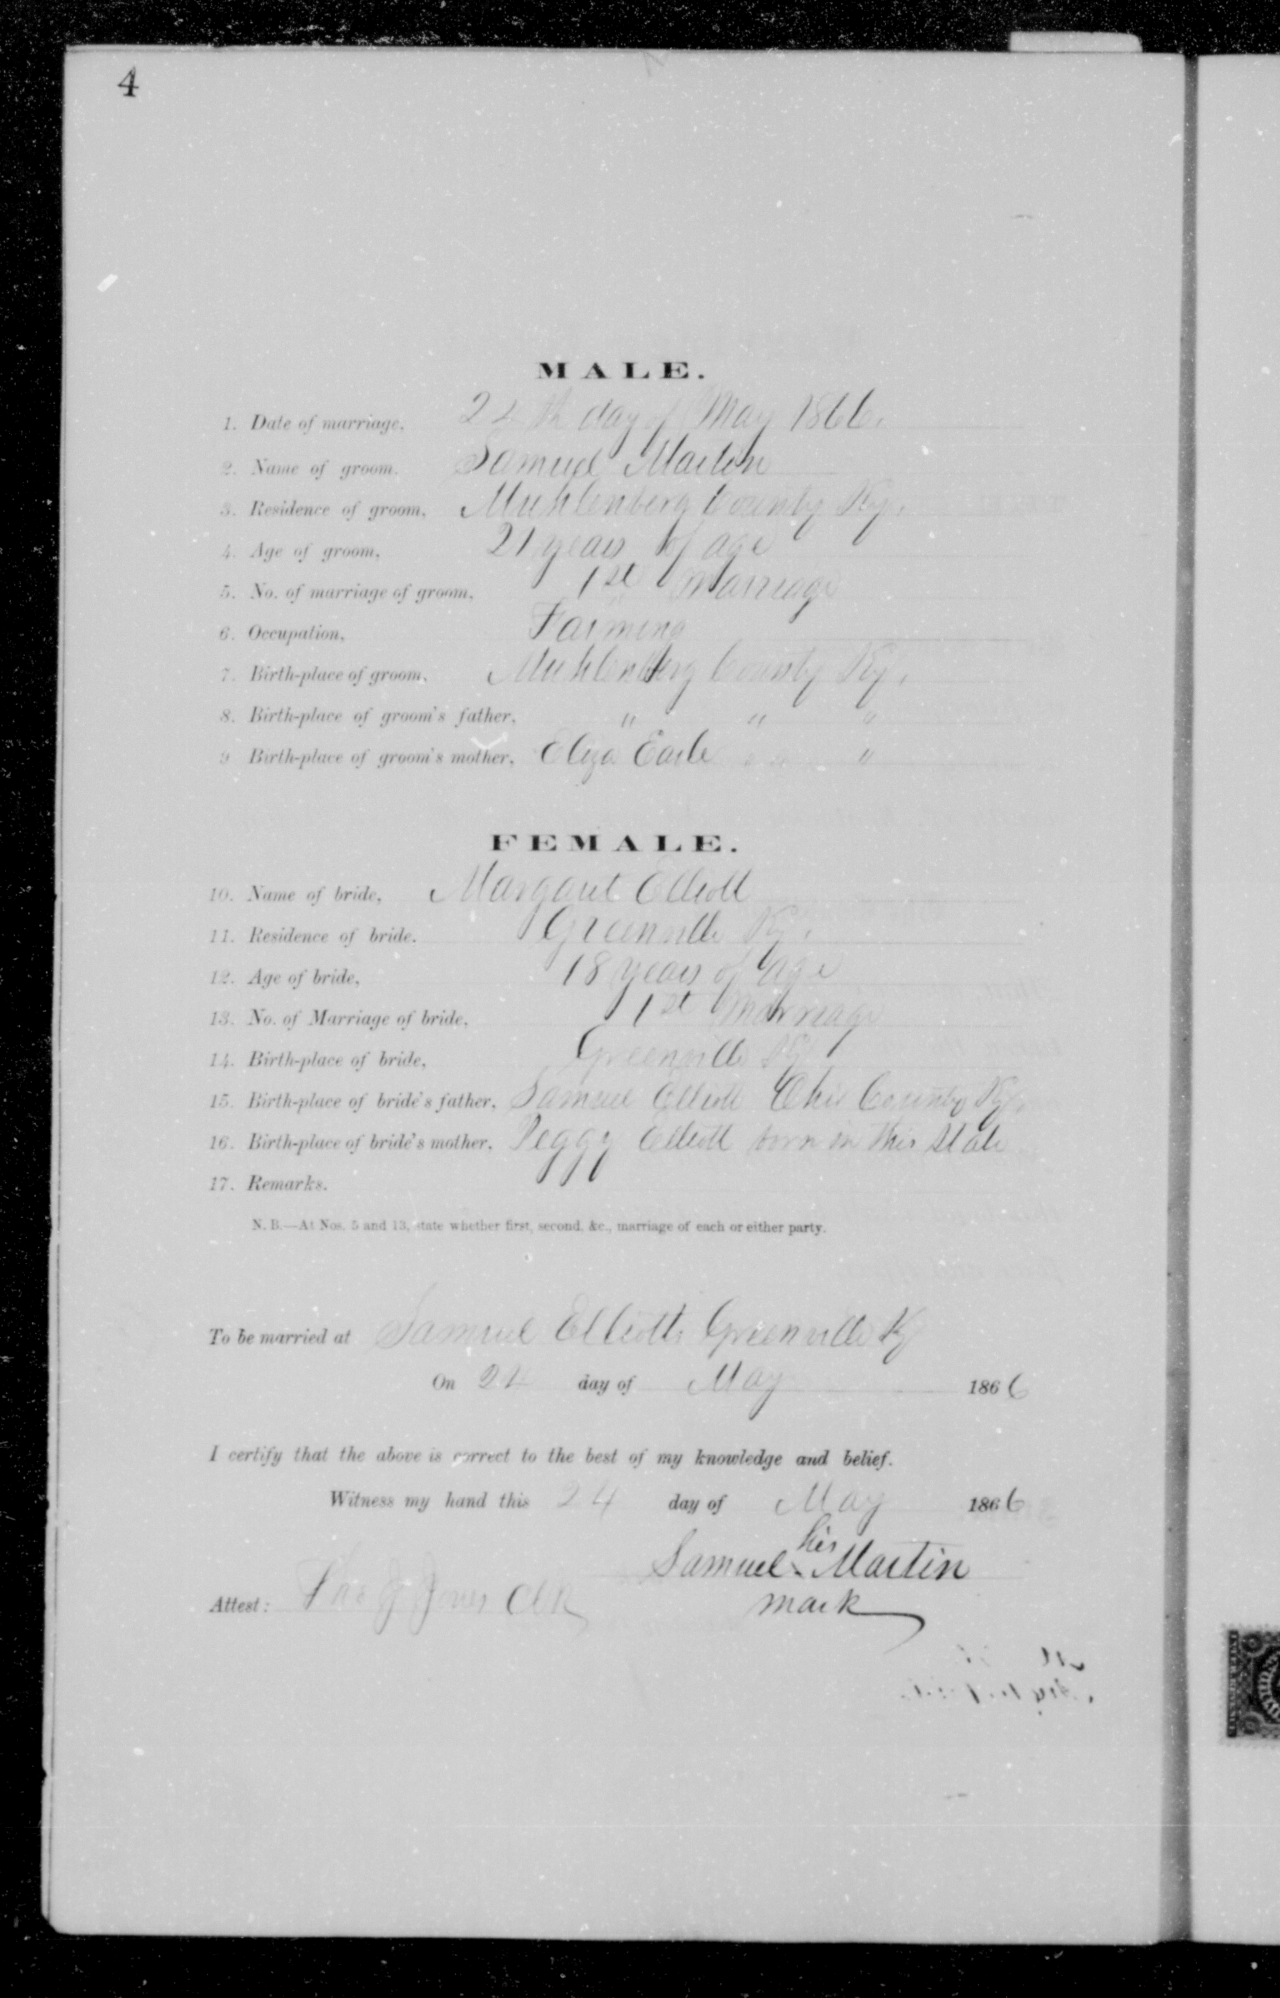 4
MALE.
1. Date of marriage, 24th day of May 1866.
2. Name of groom. Samuel Martin
3. Residence of groom, Muhlenberg County Ky.
4. Age of groom, 21 years of age
5. No. of marriage of groom, 1st Marriage
6. Occupation, Farming
7. Birth-place of groom, Muhlenberg County Ky.
8. Birth-place of groom's father, " " "
9 Birth-place of groom's mother, Eliza Earle " " "
FEMALE.
10. Name of bride, Margaret Elliott
11. Residence of bride. Greenville Ky.
12. Age of bride, 18 years of age
13. No. of Marriage of bride, 1st Marriage
14. Birth-place of bride, Greenville Ky
15. Birth-place of bride's father, Samuel Elliott Ohio County Ky.
16. Birth-place of bride's mother, Peggy Elliott born in this State
17. Remarks.
N. B.—At Nos. 5 and 13, state whether first, second, &c., marriage of each or either party.
To be married at Samuel Elliotts Greenville Ky
On 24 day of May 1866
I certify that the above is correct to the best of my knowledge and belief.
Witness my hand this 24 day of May 1866
his
Samuel x Martin
Attest: Jno J Jones Clk mark